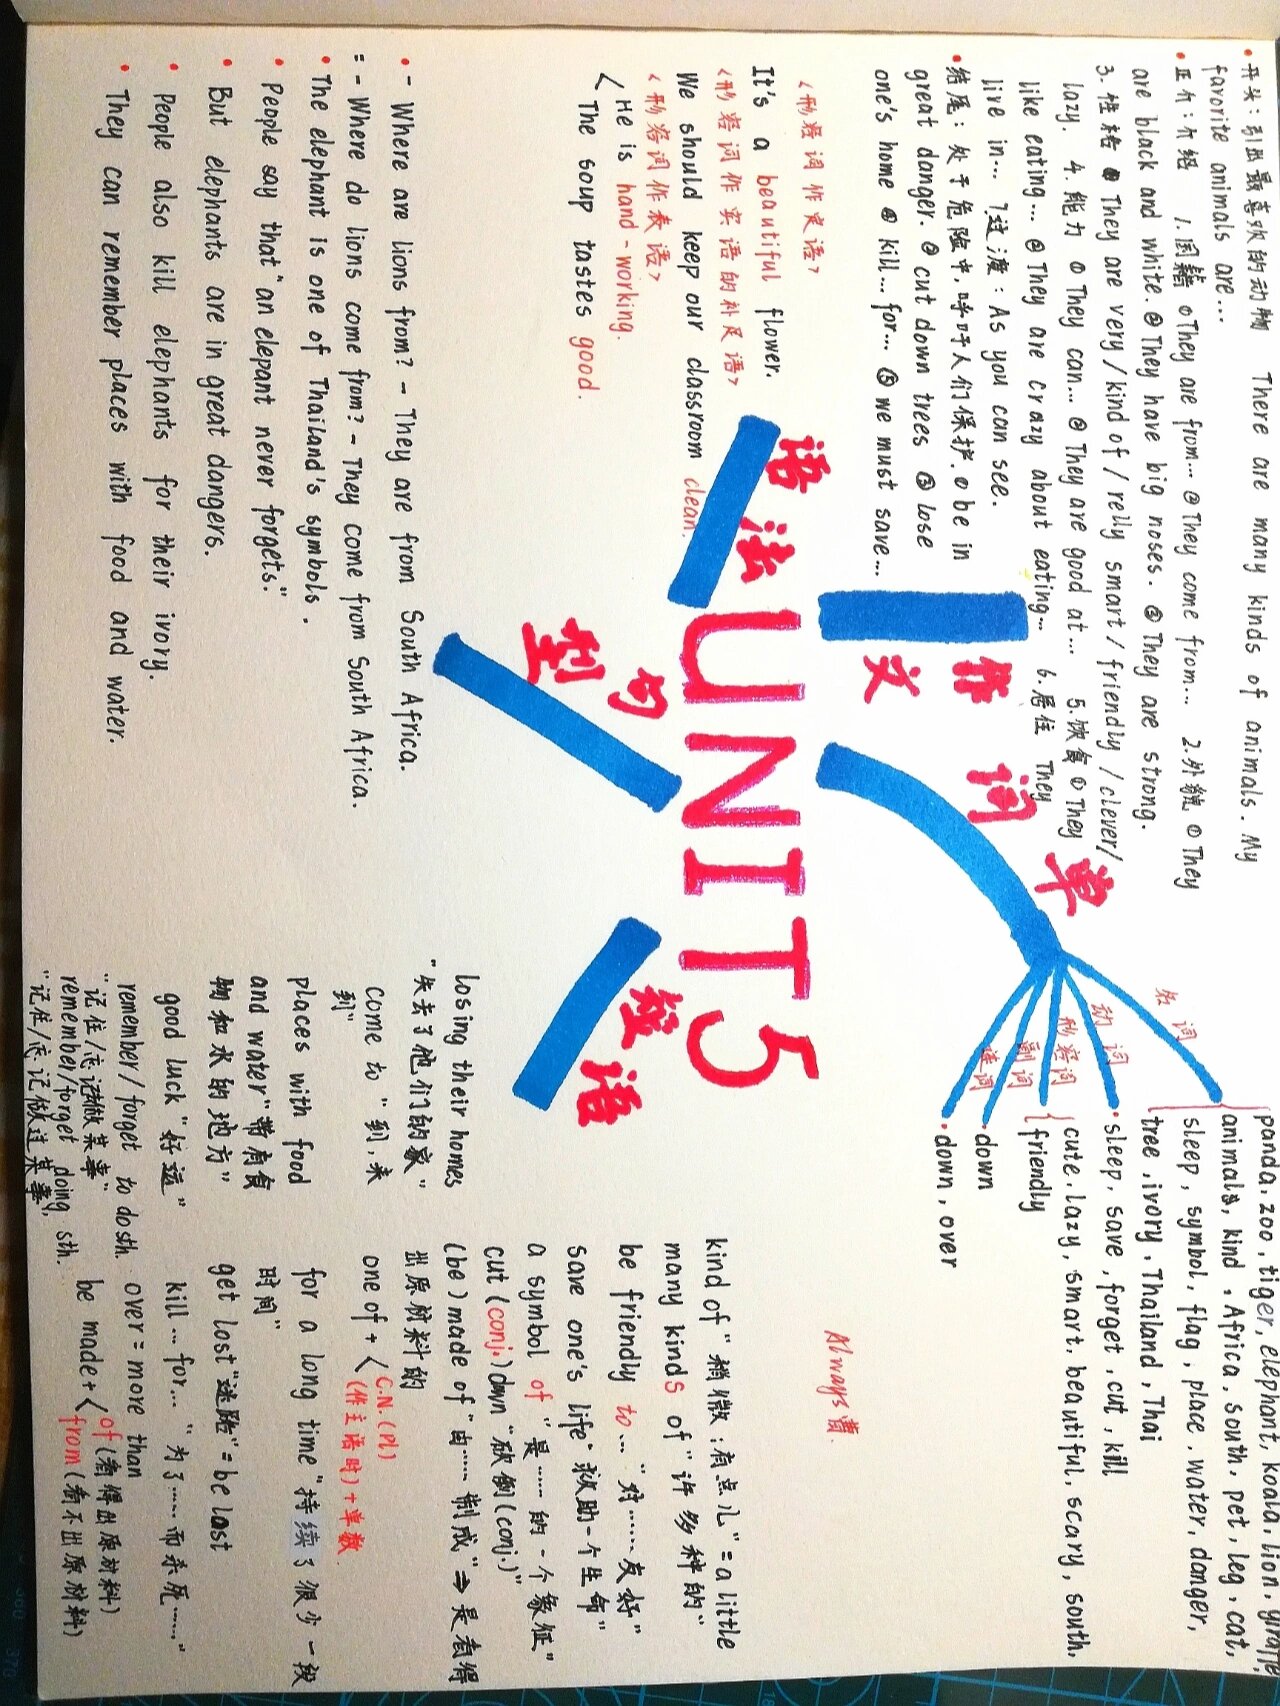 • 开头：引出最喜欢的动物 There are many kinds of animals. My
favorite animals are...
• 正介：介绍 1.国籍 ①They are from... ②They come from... 2.外貌 ①They
are black and white. ②They have big noses. ③They are strong.
3.性格 ①They are very/kind of/relly smart/friendly/clever/
lazy. 4.能力 ①They can... ②They are good at... 5.饮食 ①They
like eating... ②They are crazy about eating... 6.居住 They
live in... 7过渡：As you can see.
• 结尾：处于危险中，呼吁人们保护. ①be in
great danger. ②cut down trees ③lose
one's home ④kill...for... ⑤we must save...
作文
<形容词作定语>
It's a beautiful flower.
<形容词作宾语的补足语>
We should keep our classroom clean.
<形容词作表语>
He is hand-working.
The soup tastes good.
语法
UNIT5
句型
• - Where are lions from? - They are from South Africa.
= - Where do lions come from? - They come from South Africa.
• The elephant is one of Thailand's symbols.
• People say that "an elepant never forgets."
• But elephants are in great dangers.
• People also kill elephants for their ivory.
• They can remember places with food and water.
单词
名词
panda, zoo, tiger, elephant, koala, lion, giraffe,
animals, kind, Africa, south, pet, leg, cat,
sleep, symbol, flag, place, water, danger,
tree, ivory, Thailand, Thai
动词
• sleep, save, forget, cut, kill
形容词
cute, lazy, smart, beautiful, scary, south,
friendly
副词
• down
连词
• down, over
Always曹.
短语
losing their homes
"失去了他们的家"
come to "到，来
到"
places with food
and water "带有食
物和水的地方"
good luck "好运"
remember/forget to dosth.
"记住/忘记做某事"
remember/forget doing sth.
"记住/忘记做过某事"
kind of "稍微；有点儿" = a little
many kinds of "许多种的"
be friendly to... "对……友好"
save one's life. 救助一个生命"
a symbol of "是……的一个象征"
cut (conj.) down "砍倒(conj.)"
(be) made of "由……制成" ⇒ 是看得
出原材料的
one of + < C.N.(pl)
(作主语时)+单数
for a long time "持续了很少一段
时间"
get lost "迷路" = be lost
kill...for... "为了……而杀死……"
over = more than
be made + < of (看得出原材料)
from (看不出原材料)